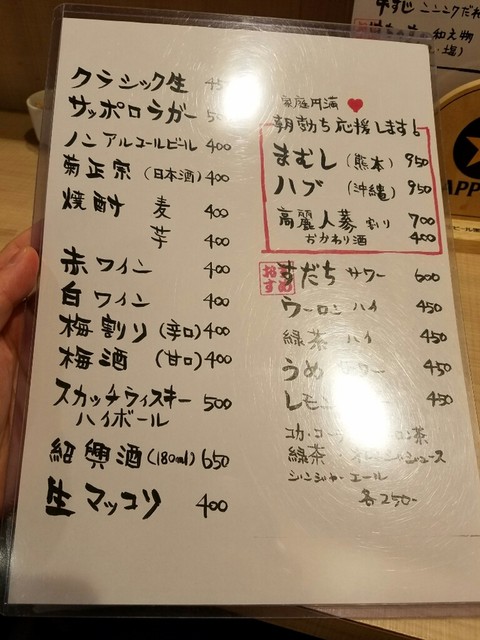 クラシック生 45
サッポロラガー 5
ノンアルコールビール 400
菊正宗 (日本酒) 400
焼酎 麦 400
芋 400
赤ワイン 400
白ワイン 400
梅割り (辛口) 400
梅酒 (甘口) 400
スカッチウィスキー 500
ハイボール
紹興酒 (180ml) 650
生マッコリ 400
家庭円満
朝勃ち応援します!
まむし (熊本) 950
ハブ (沖縄) 950
高麗人参割り 700
おかわり酒 400
おすすめ
すだちサワー 600
ウーロンハイ 450
緑茶ハイ 450
うめサワー 450
レモン 450
コカ・コーラ ロン茶
緑茶・オレンジジュース
ジンジャーエール
各250-
牛すじ ニンニクだれ
和え物
・塩)
APP